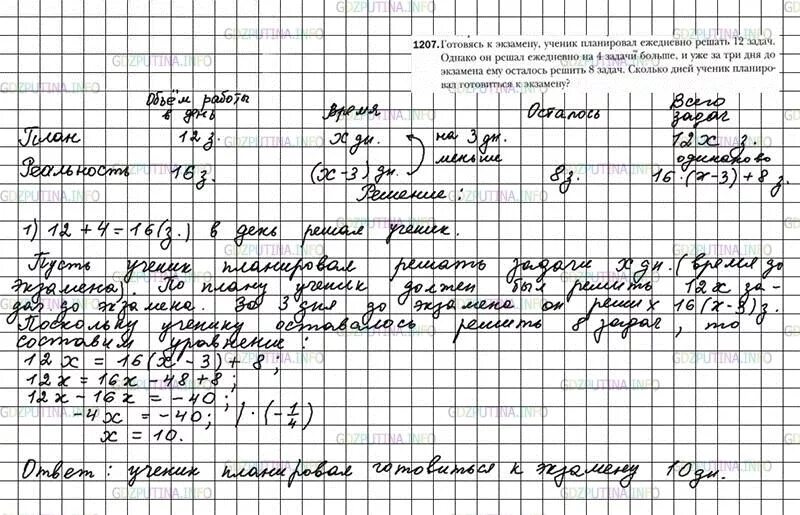 1207. Готовясь к экзамену, ученик планировал ежедневно решать 12 задач.
Однако он решал ежедневно на 4 задачи больше, и уже за три дня до
экзамена ему осталось решить 8 задач. Сколько дней ученик планиро-
вал готовиться к экзамену?
Объём работы в день Время Осталось Всего задач
План 12 з. x дн. на 3 дн. меньше 12x з.
одинаково
Реальность 16 з. (x-3) дн. 8 з. 16·(x-3)+8 з.
Решение:
1) 12 + 4 = 16 (з.) в день решал ученик.
Пусть ученик планировал решать задачи x дн. (время до
экзамена). По плану ученик должен был решить 12x за-
дач до экзамена. За 3 дня до экзамена он решил 16(x-3) з.
Поскольку ученику оставалось решить 8 задач, то
составим уравнение:
12x = 16(x-3)+8;
12x = 16x-48+8;
12x-16x = -40;
-4x = -40; | · (-1/4)
x = 10.
Ответ: ученик планировал готовиться к экзамену 10 дн.
GDZPUTINA.INFO